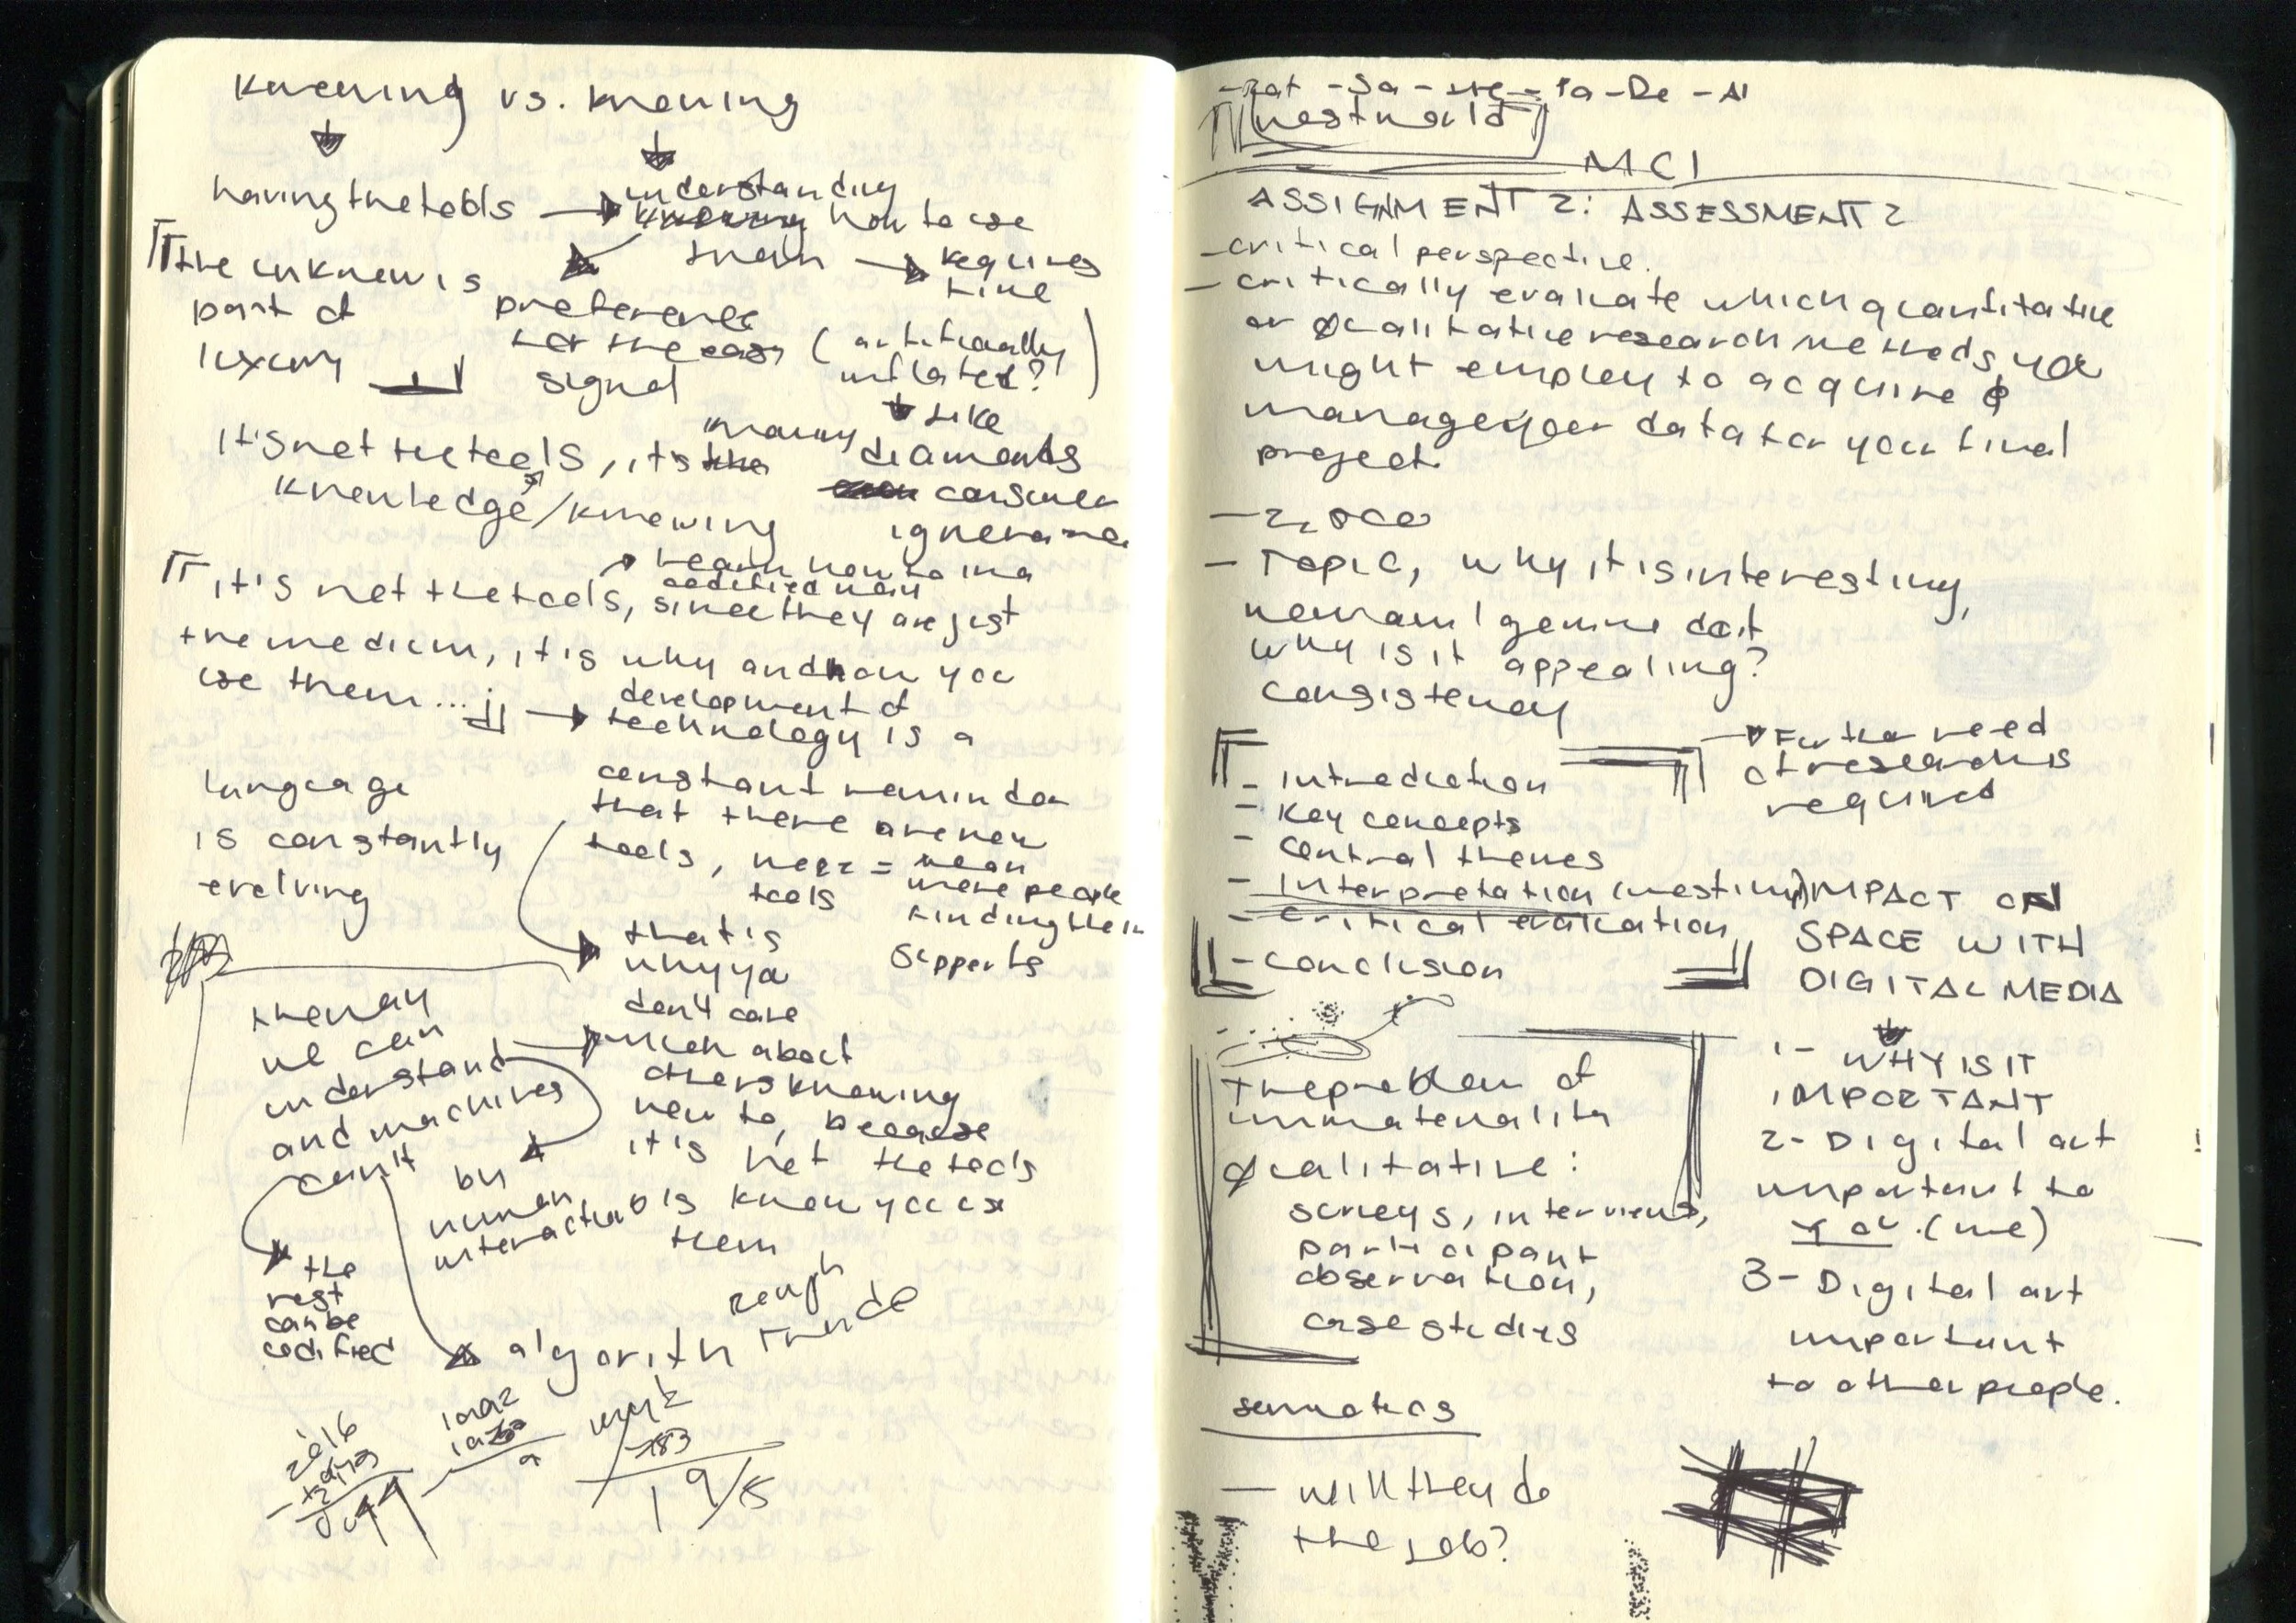 knowing vs. knowing
having the tools → understanding
how to use
them → requires
time
the unknow is
part of
luxury
preference
for the easy
signal
(artificially
inflated?)
like
diamonds
consumer
ignorance
it's not the tools, it's
knowledge/knowing
learn how to in a
codified way
it's not the tools, since they are just
the medium, it is why and how you
use them...
→ development of
technology is a
constant reminder
that there are new
tools, new =
tools
mean
more people
finding their
supports
language
is constantly
evolving
that is
why ya
don't care
much about
others knowing
how to, because
it is not the tools
is know you use
them
the way
we can
understand
and machines
can't
by
human
interaction
the
rest
can be
codified
algorith
rough
2016
1992
19/5
- Sa - - Pa - De - Al
Westworld
MCI
ASSIGNMENT 2: ASSESSMENT 2
- critical perspective.
- critically evaluate which quantitative
or qualitative research methods you
might employ to acquire &
manage your data for you final
project.
- Topic, why it is interesting,
why is it appealing?
consistency
- introduction
- Key concepts
- central themes
- interpretation
- critical evaluation
- conclusion
→ Further need
of research is
required
IMPACT ON
SPACE WITH
DIGITAL MEDIA
1- WHY IS IT
IMPORTANT
2- Digital art
important to
you. (me)
3- Digital art
important
to other people.
the problem of
immateriality
Qualitative:
surveys, interviews,
participant
observation,
case studies
semiotics
— will they do
the job?